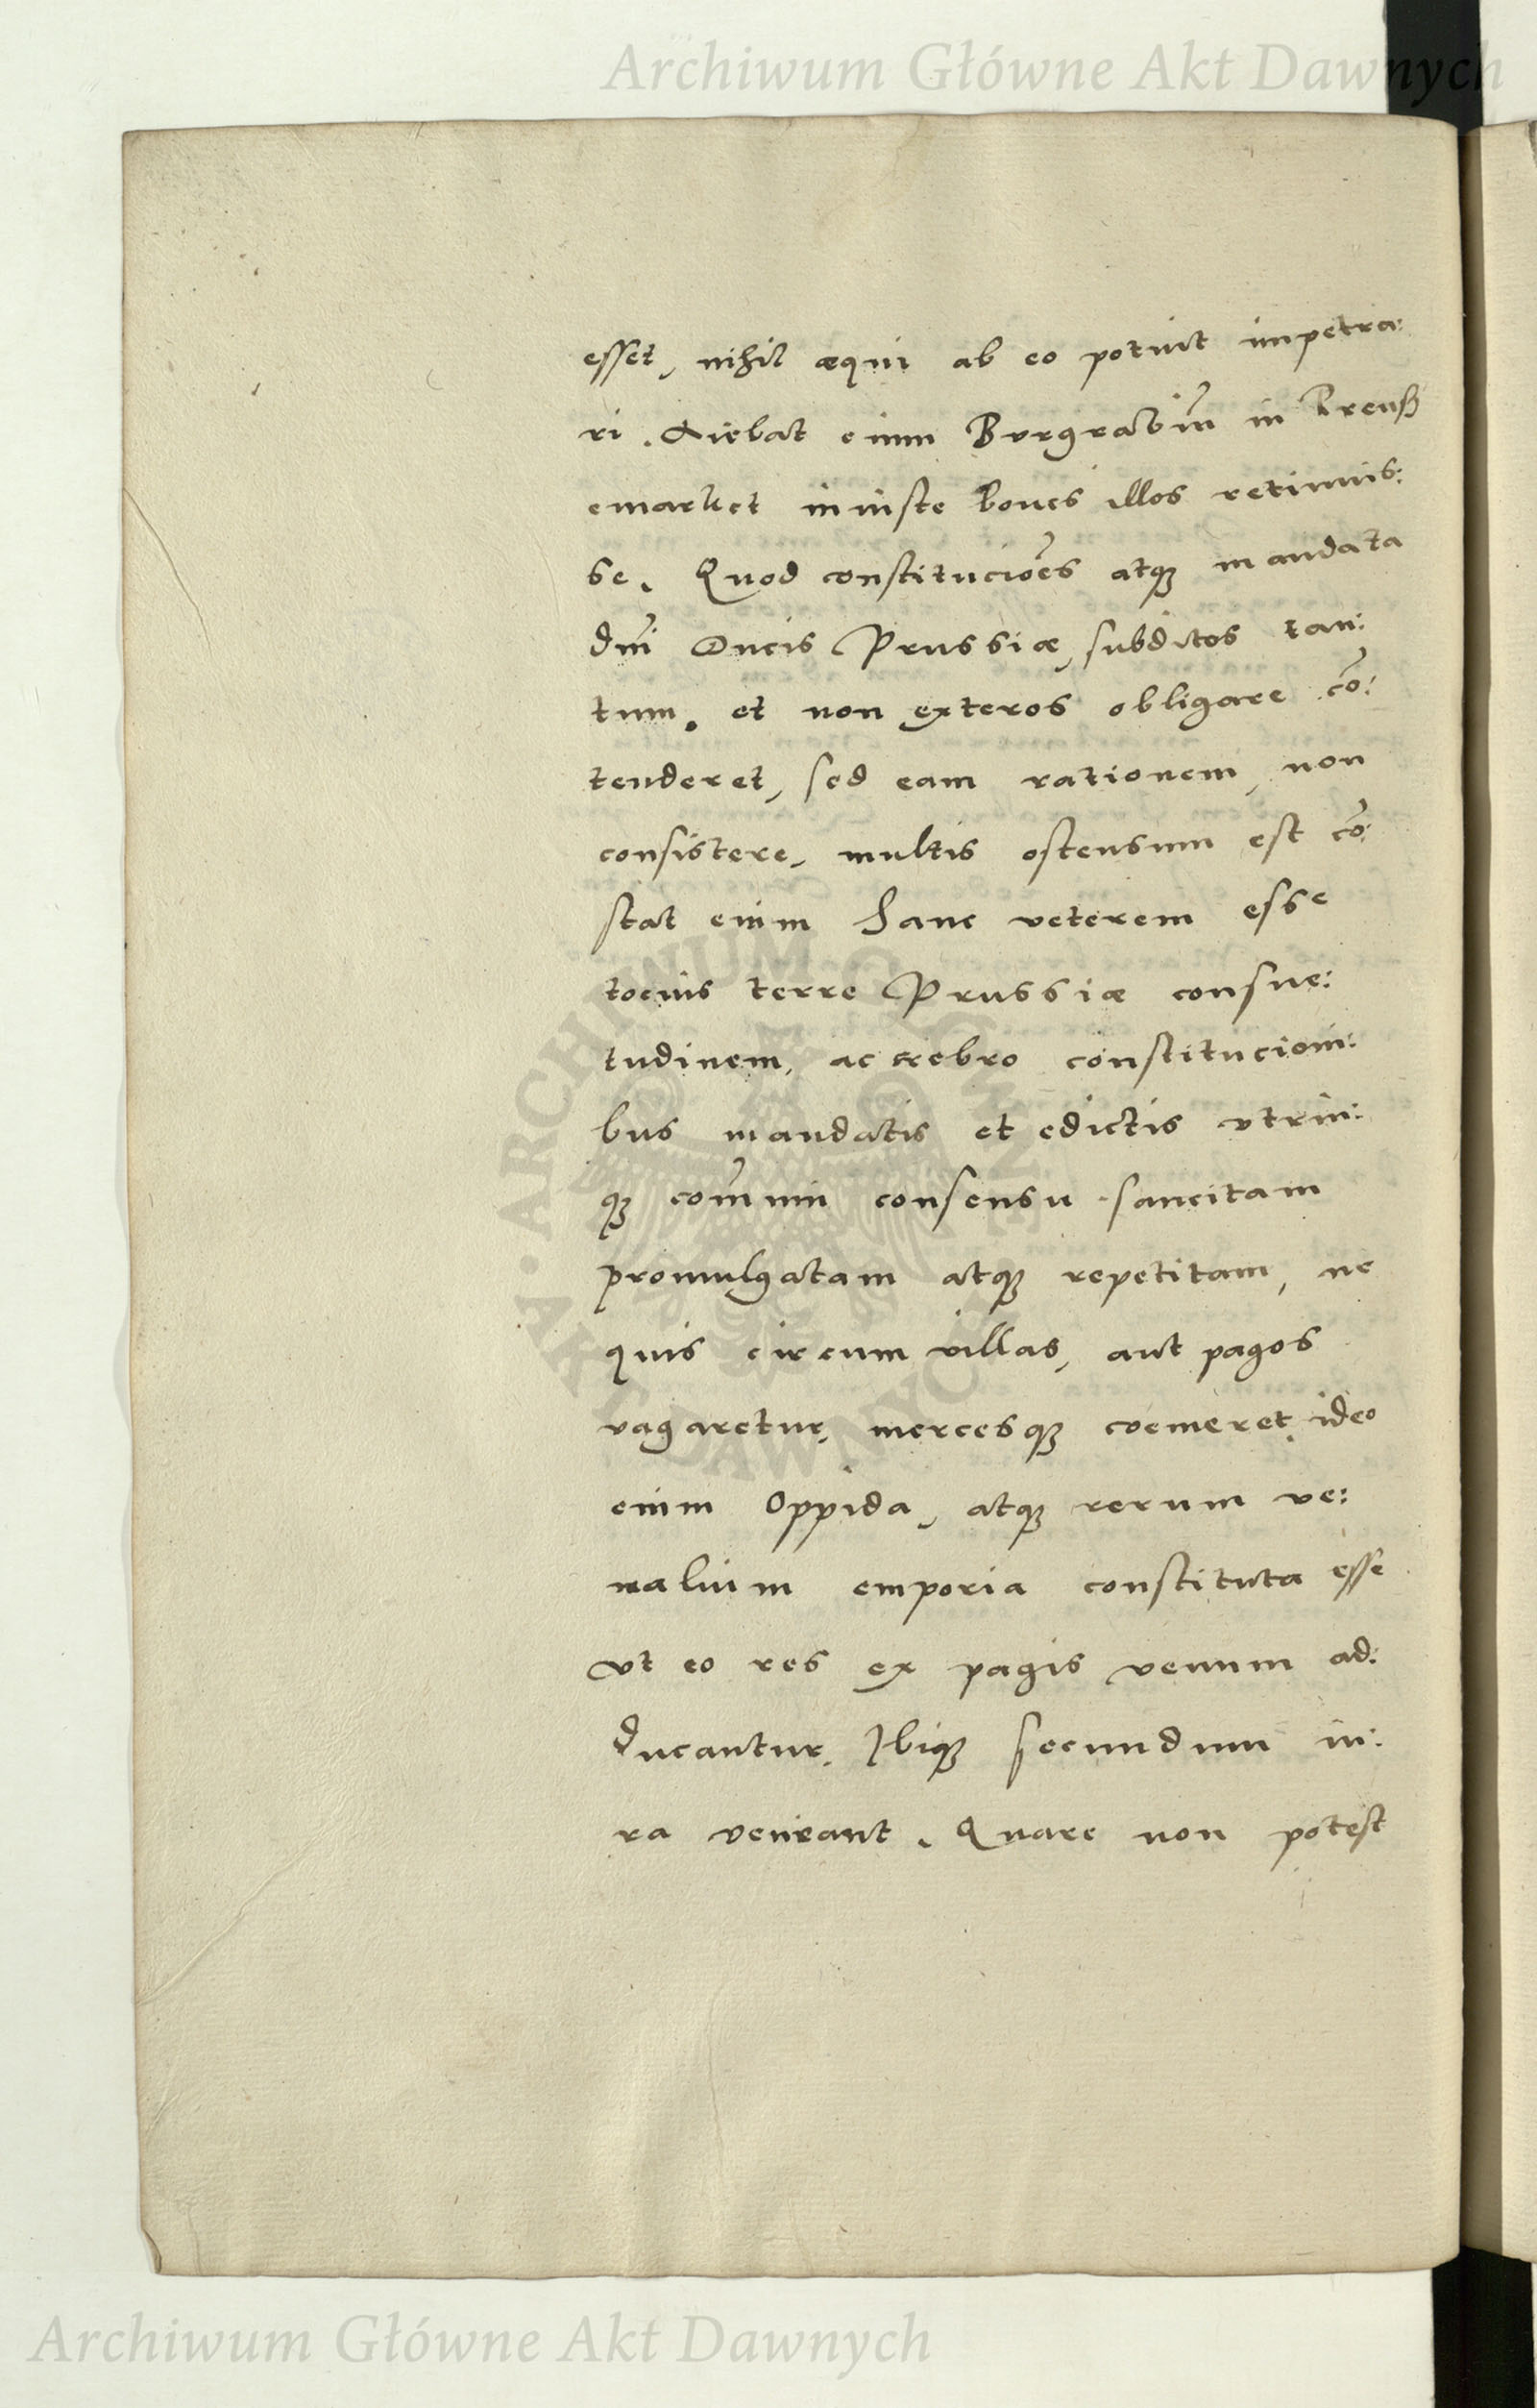 Archiwum Główne Akt Dawnych
esset, nihil æqui ab eo potuit impetra:
ri. Aiebat enim Burgrabiu͂ in Preuß
emarket iniuste boues illos retinuis:
se. Quod constitucio͂es atqꝫ mandata
dn͂i Ducis Prussiæ, subditos tan:
tum. et non exteros obligare co͂:
tenderet, sed eam rationem, non
consistere, multis ostensum est co͂:
stat enim hanc veterem esse
tocius terre Prussiæ consue:
tudinem, ac crebro constitucioni:
bus mandatis et edictis vtrin:
qꝫ com͂uni consensu sancitam
promulgatam atqꝫ repetitam, ne
quis circum villas, aut pagos
vagaretur, mercesqꝫ coemeret, ideo
enim Oppida, atqꝫ rerum ve:
nalium emporia constituta esse
vt eo res ex pagis venum ad:
ducantur. Ibiqꝫ secundum iu:
ra veneant. Quare non potest
ARCHIWUM GŁÓWNE AKT DAWNYCH
Archiwum Główne Akt Dawnych